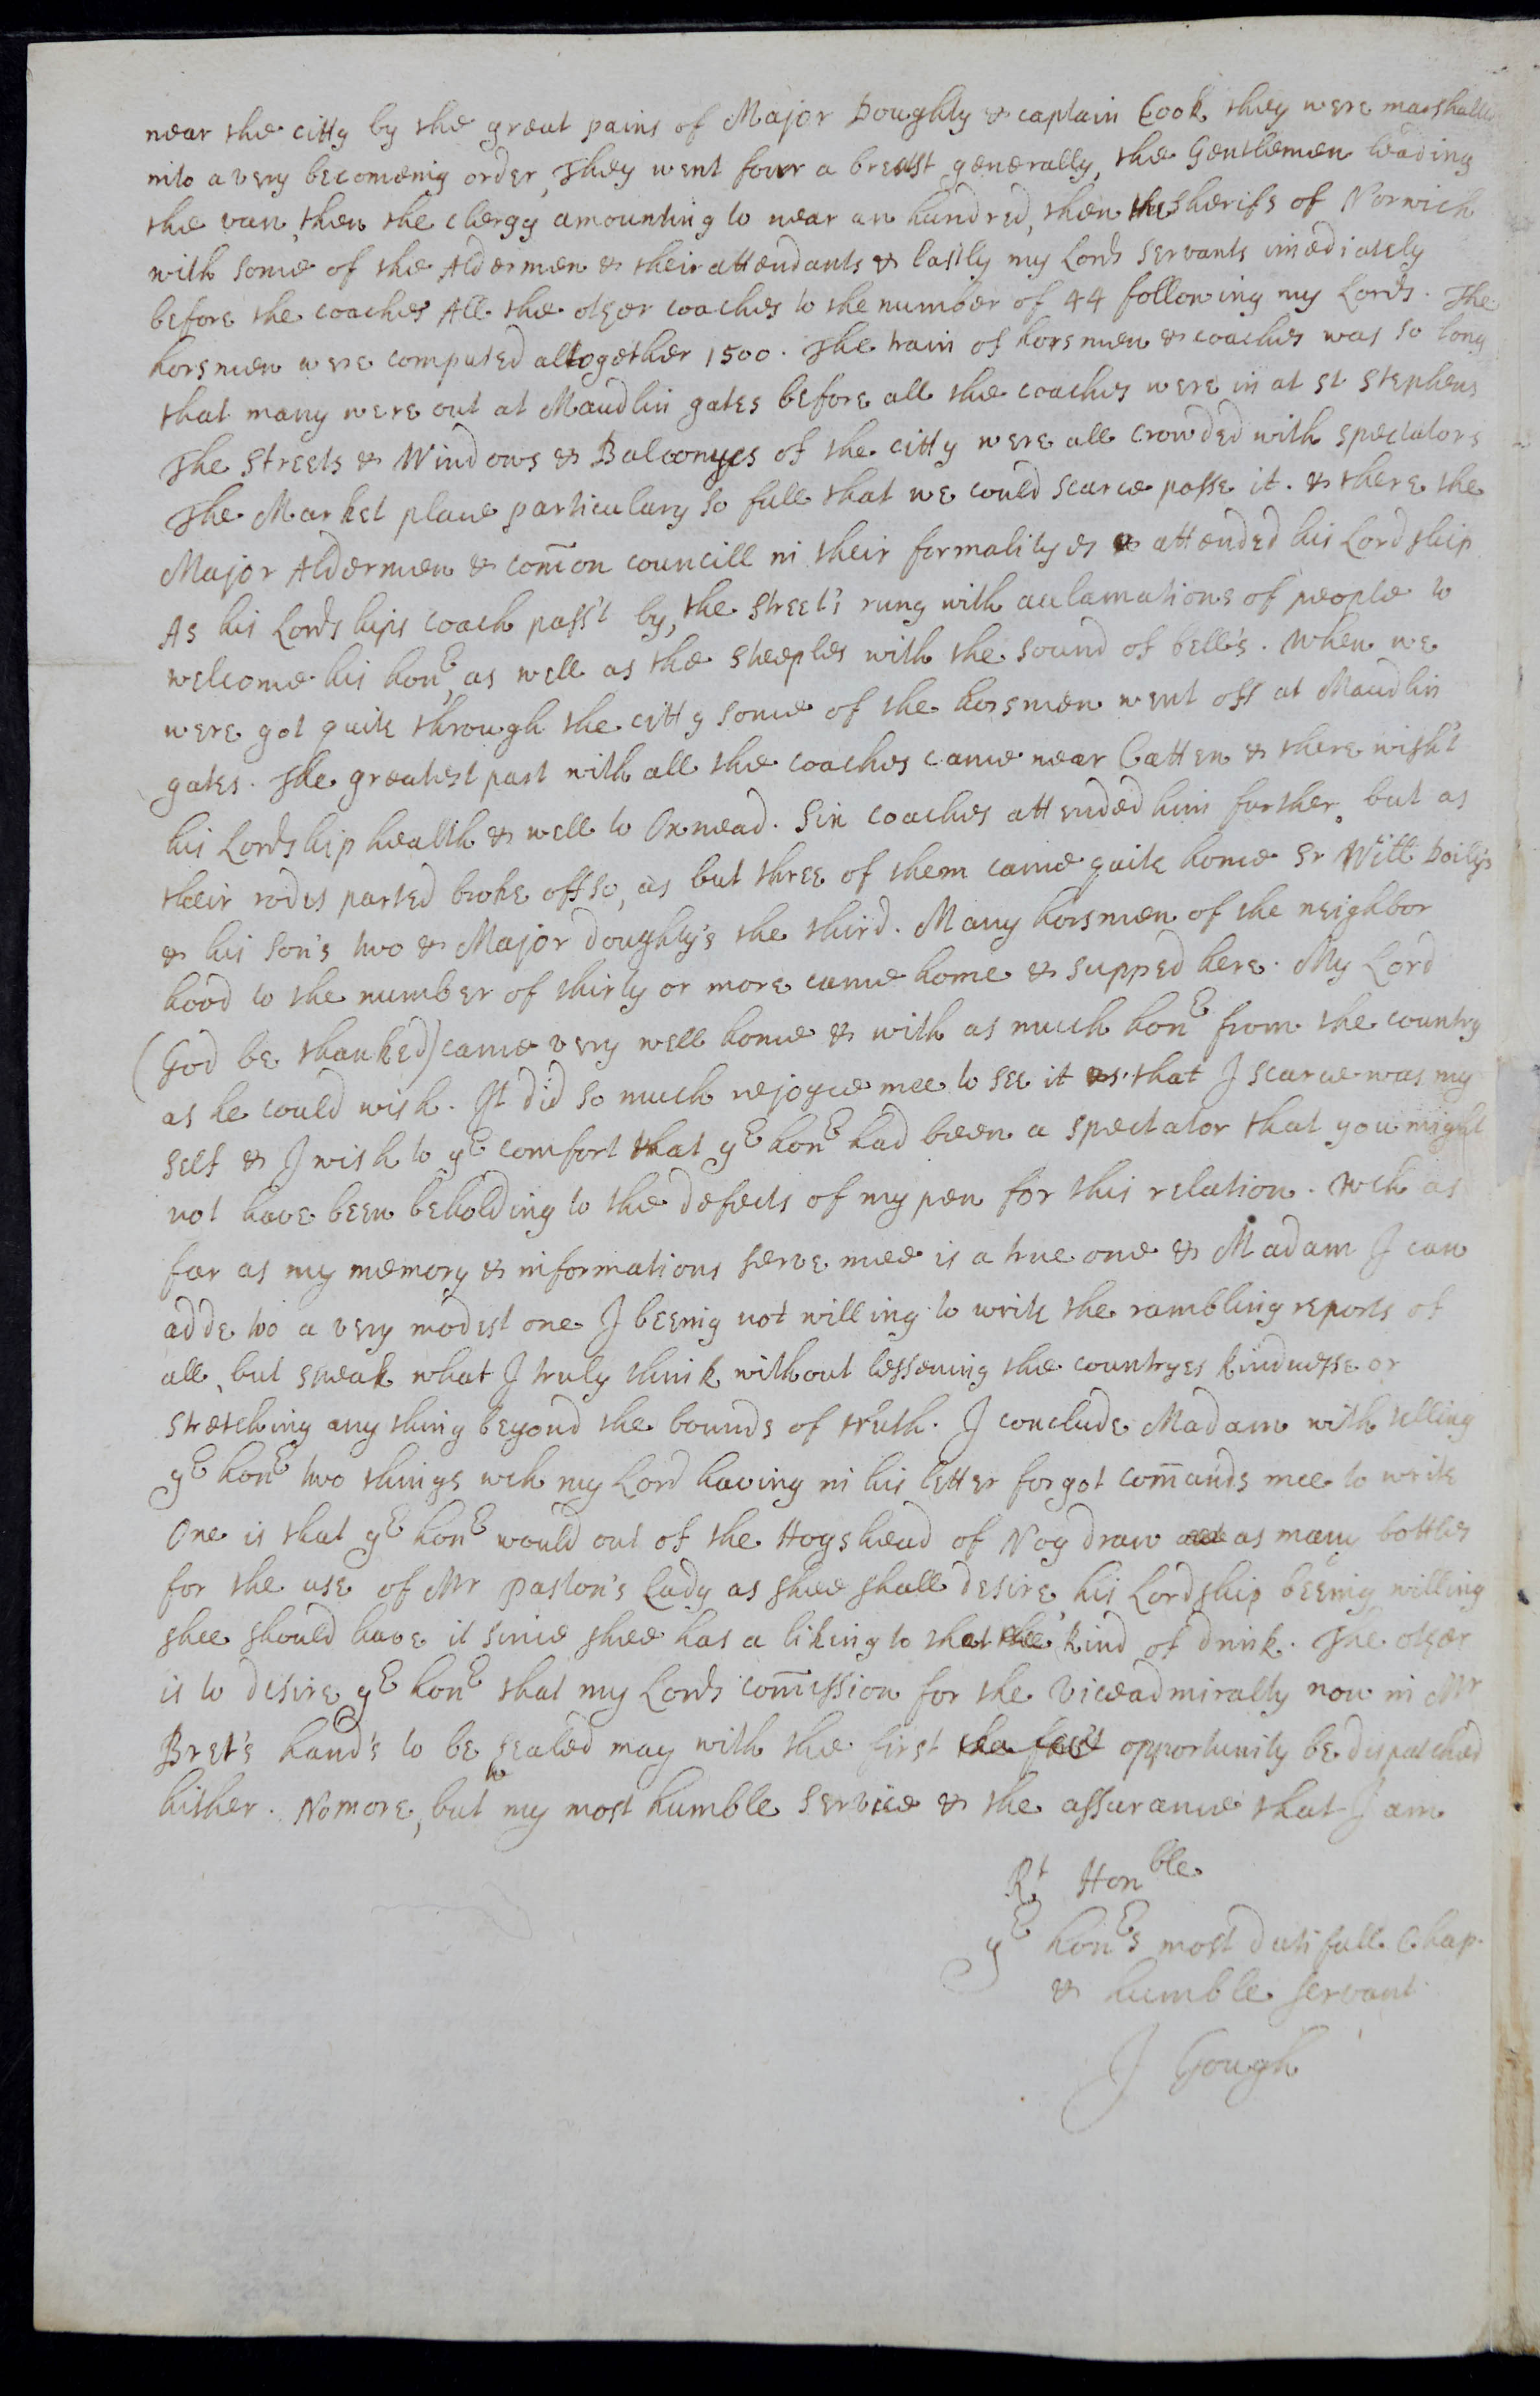 near the citty by the great pains of Major Doughty & captain Cook they were marshalled
into a very becomeing order, They went four a breast generally, the Gentlemen leading
the van, then the clergy amounting to near an hundred, then the sherifs of Norwich
with some of the Aldermen & their attendants & lastly my Lords servants imediately
before the coaches All the other coaches to the number of 44 following my Lords. The
horsmen were computed altogether 1500. The train of horsmen & coaches was so long
that many were out at Maudlin gates before all the coaches were in at st stephens
The streets & Windows & Balconyes of the citty were all crowded with spectators
The Market place particulary so full that we could scarce passe it. & there the
Major Aldermen & com̄on councill in their formalityes attended his Lordship
As his Lordships coach pass't by, the street's rung with acclamations of people to
welcome his honr, as well as the steeples with the sound of bell's. When we
were got quite through the citty some of the horsmen went off at Maudlin
gates. The greatest part with all the coaches came near Catten & there wish't
his Lordship health & well to Oxnead. Six coaches attended him further, but as
their rodes parted broke off so, as but three of them came quite home Sr Will Doily's
& his son's two & Major doughty's the third. Many horsmen of the neighbor
hood to the number of thirty or more came home & supped here. My Lord
(God be thanked) came very well home & with as much honr from the country
as he could wish. It did so much rejoyce mee to see it that I scarce was my
self & I wish to yr comfort that yr honr had been a spectator that you might
not have been beholding to the defects of my pen for this relation. Wch as
far as my memory & informations serve mee is a true one & Madam I can
adde too a very modest one I beeing not willing to write the rambling reports of
all, but speak what I truly think without lessening the countryes kindnesse or
stretching any thing beyond the bounds of truth. I conclude Madam with telling
yr honr two things wch my Lord having in his letter forgot com̄ands mee to write
One is that yr honr would out of the Hogshead of Nog draw as many bottles
for the use of Mr Paston's Lady as shee shall desire his Lordship beeing willing
shee should have it since shee has a liking to that kind of drink. The other
is to desire yr honr that my Lords com̄ission for the Viceadmiralty now in Mr
Bret's hand's to be sealed may with the first opportunity be dispatched
hither. No more, but my most humble service & the assurance that I am
Rt Honble
yr honrs most dutifull Chap.
& humble servant
J Gough